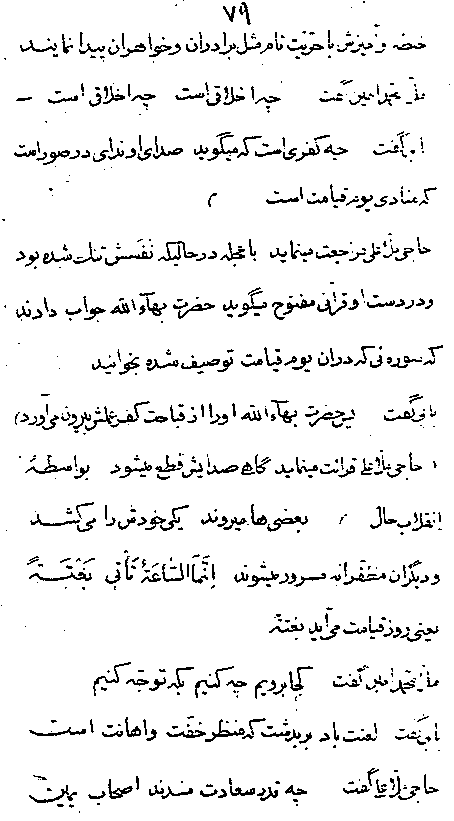 ۷۹
خنضه و آمیزش با حریت تامه مثل برادران و خواهران پیدا نمایند
ملا محمد امین گفت چه اخلاقی است چه اخلاقی است —
گفت چه کفری است که میگوید صدای او ندای در صور است
که منادی یوم قیامت است
حاجی ملا علی مراجعت مینماید با عجله در حالیکه نَفَسش تنگ شده بود
و در دست او قرآنی مفتوح میگوید حضرت بهآء الله جواب دادند
که سوره ئی که در آن یوم قیامت توصیف شده بخوانید
گفت پس حضرت بهآء الله او را از قباحت کفر عملش بیرون می آورد
حاجی ملا علی قرائت مینماید گاهی صدایش قطع میشود بواسطهٔ
انقلاب حال بعضی ها میروند یکی خودش را می کشد
و دیگران مظفرانه مسرور میشوند اِنَّمَا السَّاعَةُ تَأْتِی بَغْتَةً
یعنی روز قیامت می آید بغتة
ملا محمد امین گفت کجا برویم چه کنیم بکه توجه کنیم
گفت لعنت باد بر بدشت که منظر خفت و اهانت است
حاجی ملا علی گفت چه قدر سعادت مندند اصحاب یمین